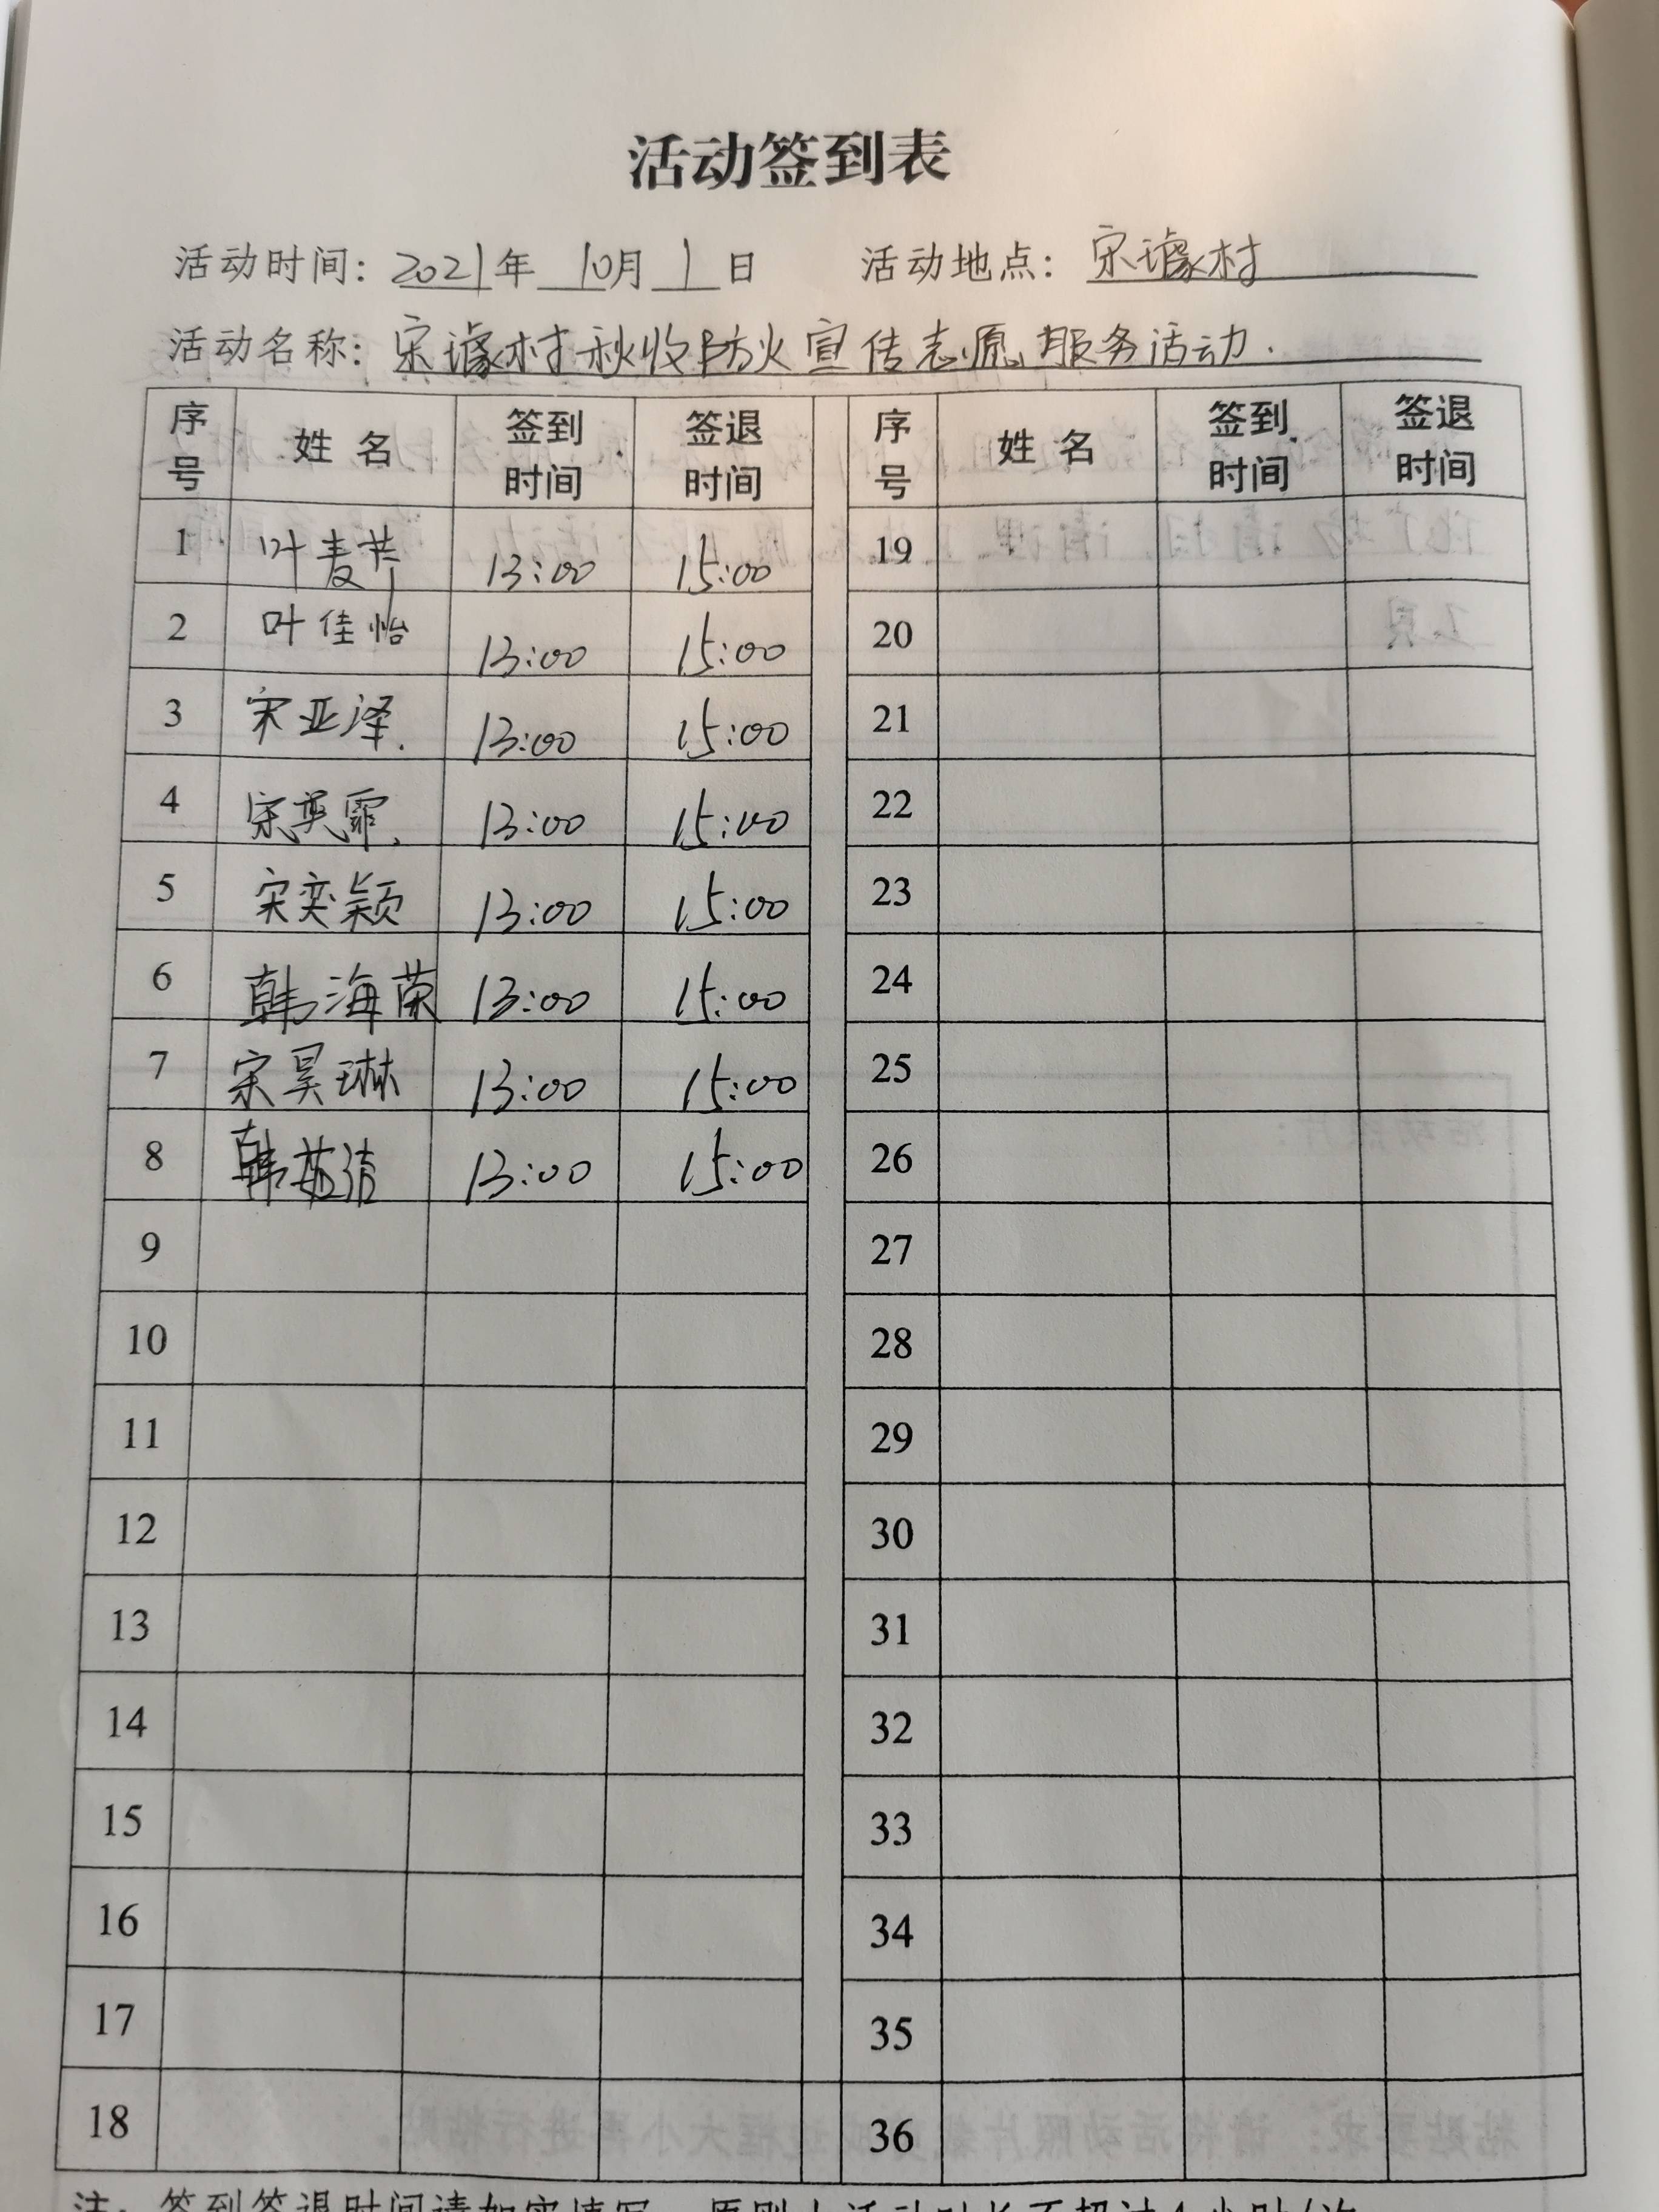 活动签到表
活动时间：2021年 10月 1 日 活动地点：宋璩村
活动名称：宋璩村秋收防火宣传志愿服务活动.
序号 姓名 签到时间 签退时间 序号 姓名 签到时间 签退时间
1 叶麦 13:00 15:00 19
2 叶佳怡 13:00 15:00 20
3 宋亚泽 13:00 15:00 21
4 宋英霏 13:00 15:00 22
5 宋奕颖 13:00 15:00 23
6 韩海荣 13:00 15:00 24
7 宋昊琳 13:00 15:00 25
8 韩茹洁 13:00 15:00 26
9 27
10 28
11 29
12 30
13 31
14 32
15 33
16 34
17 35
18 36
注：签到签退时间请如实填写，原则上活动时长不超过4小时/次